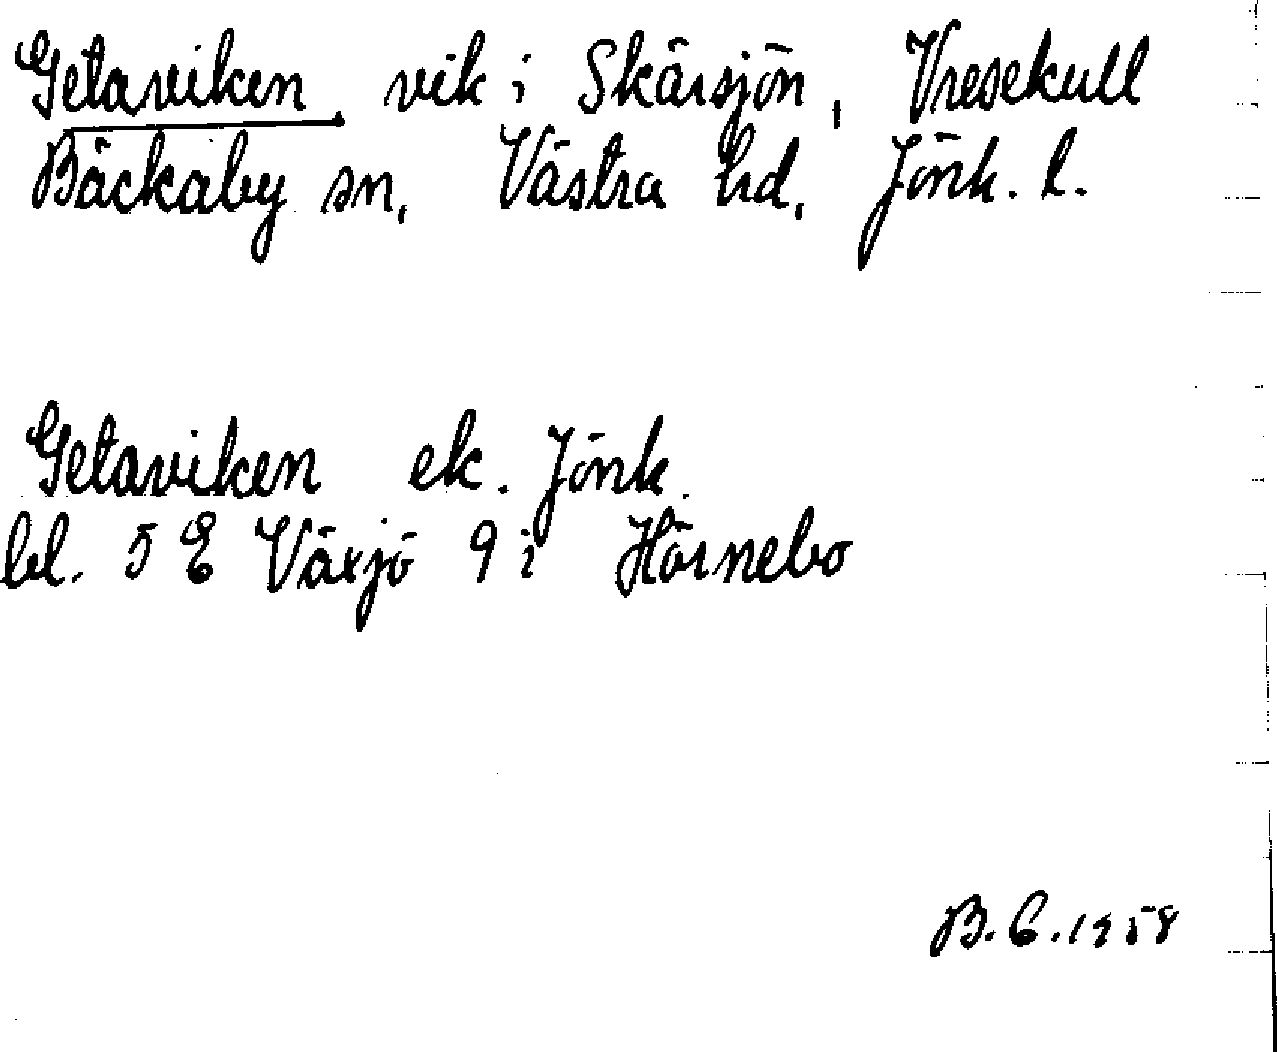 Getaviken, vik i Skärsjön, Vresekull
Bäckaby sn, Västra hd, Jönk. l.
Getaviken ek. Jönk.
bl. 5 E Växjö 9 i Hörnebo
B. E. 1958